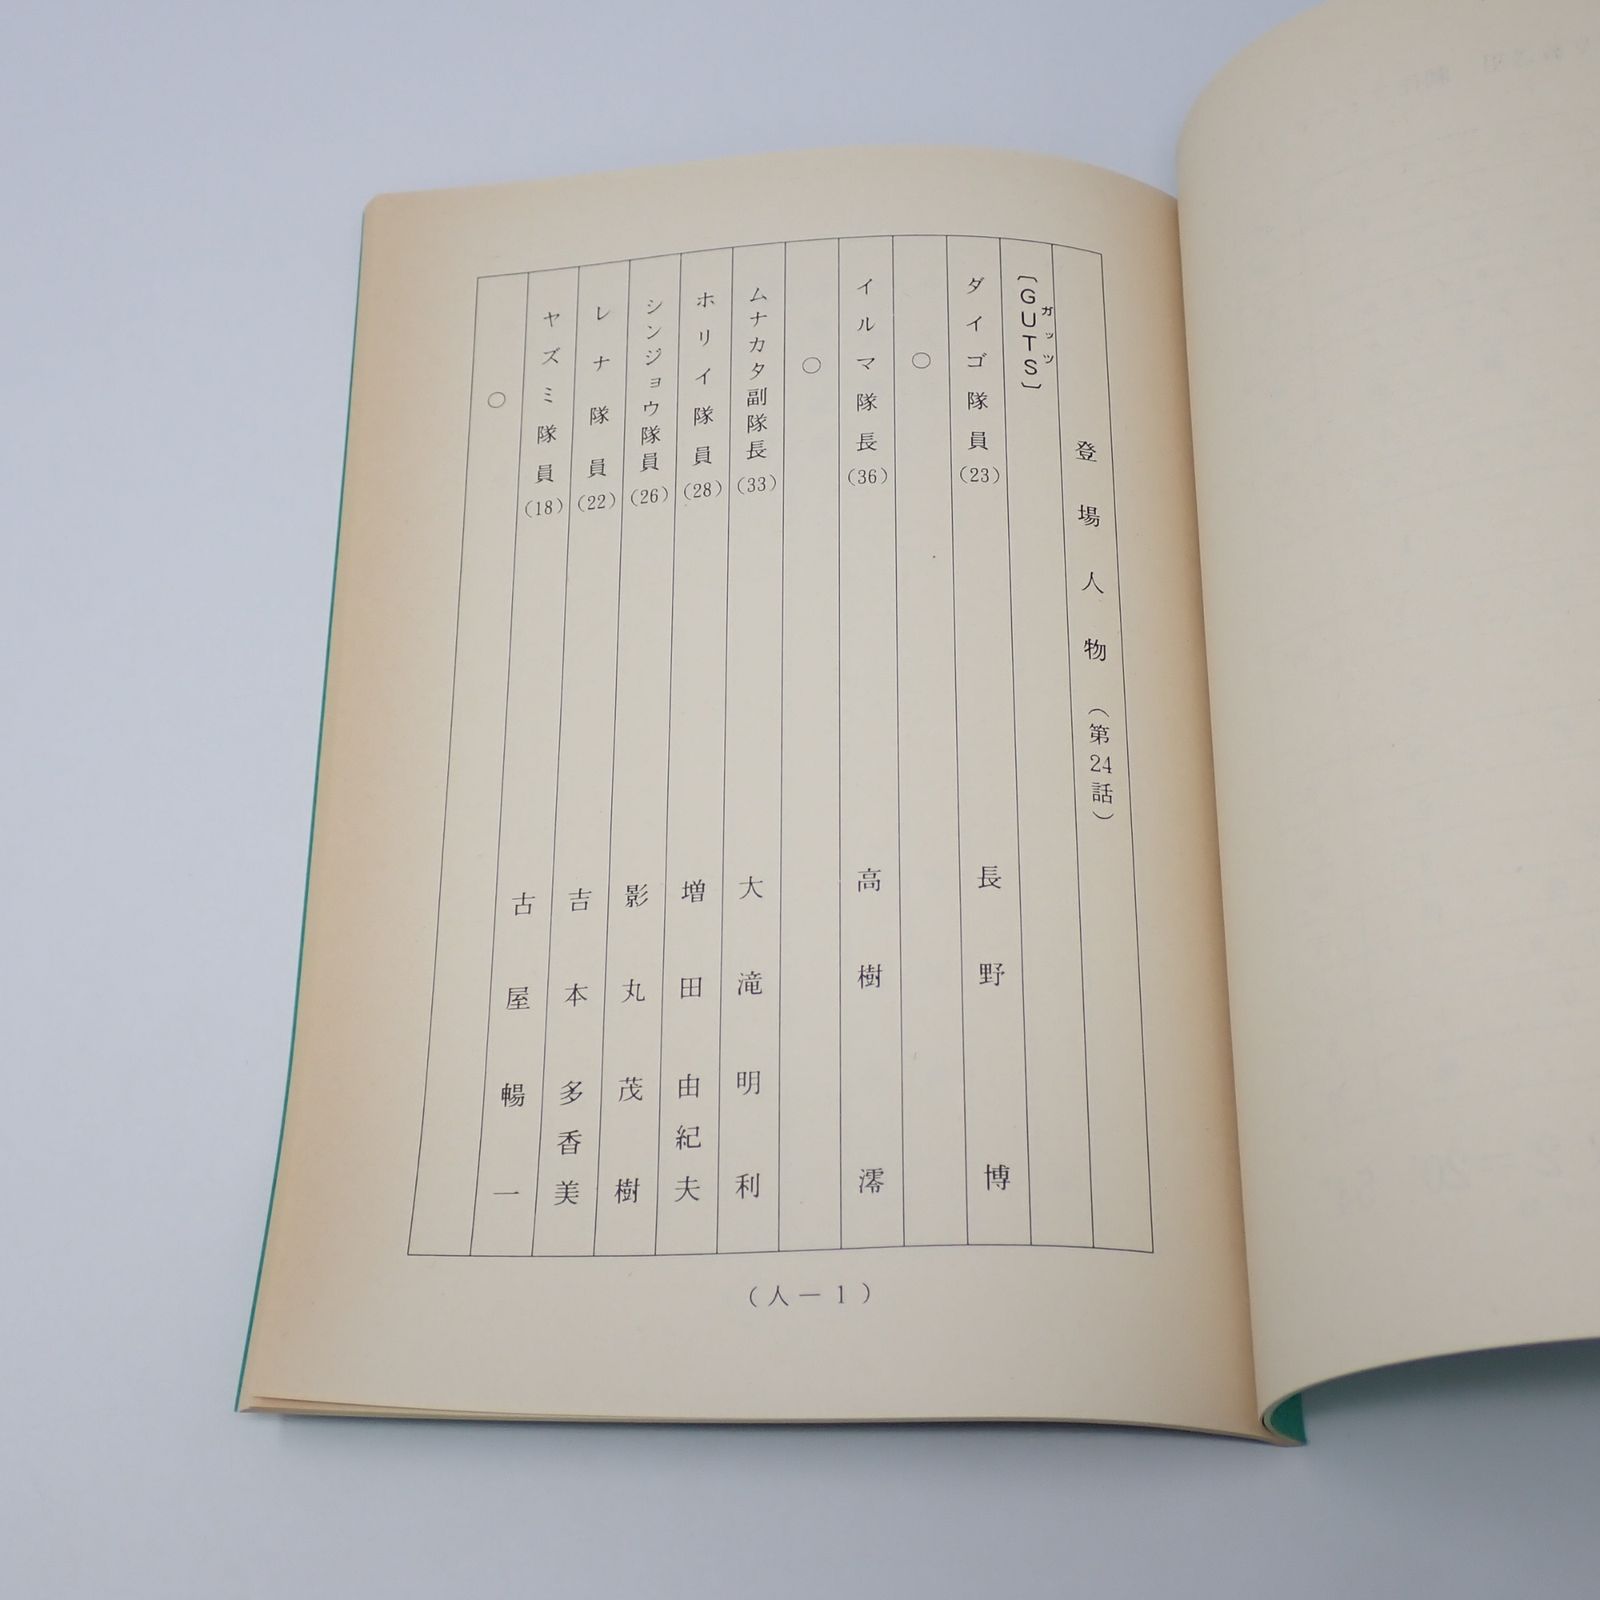 登場人物（第24話）
〔GUTS〕
ガッツ
ダイゴ隊員(23) 長野博
○
イルマ隊長(36) 高樹澪
○
ムナカタ副隊長(33) 大滝明利
ホリイ隊員(28) 増田由紀夫
シンジョウ隊員(26) 影丸茂樹
レナ隊員(22) 吉本多香美
ヤズミ隊員(18) 古屋暢一
○
（人－1）